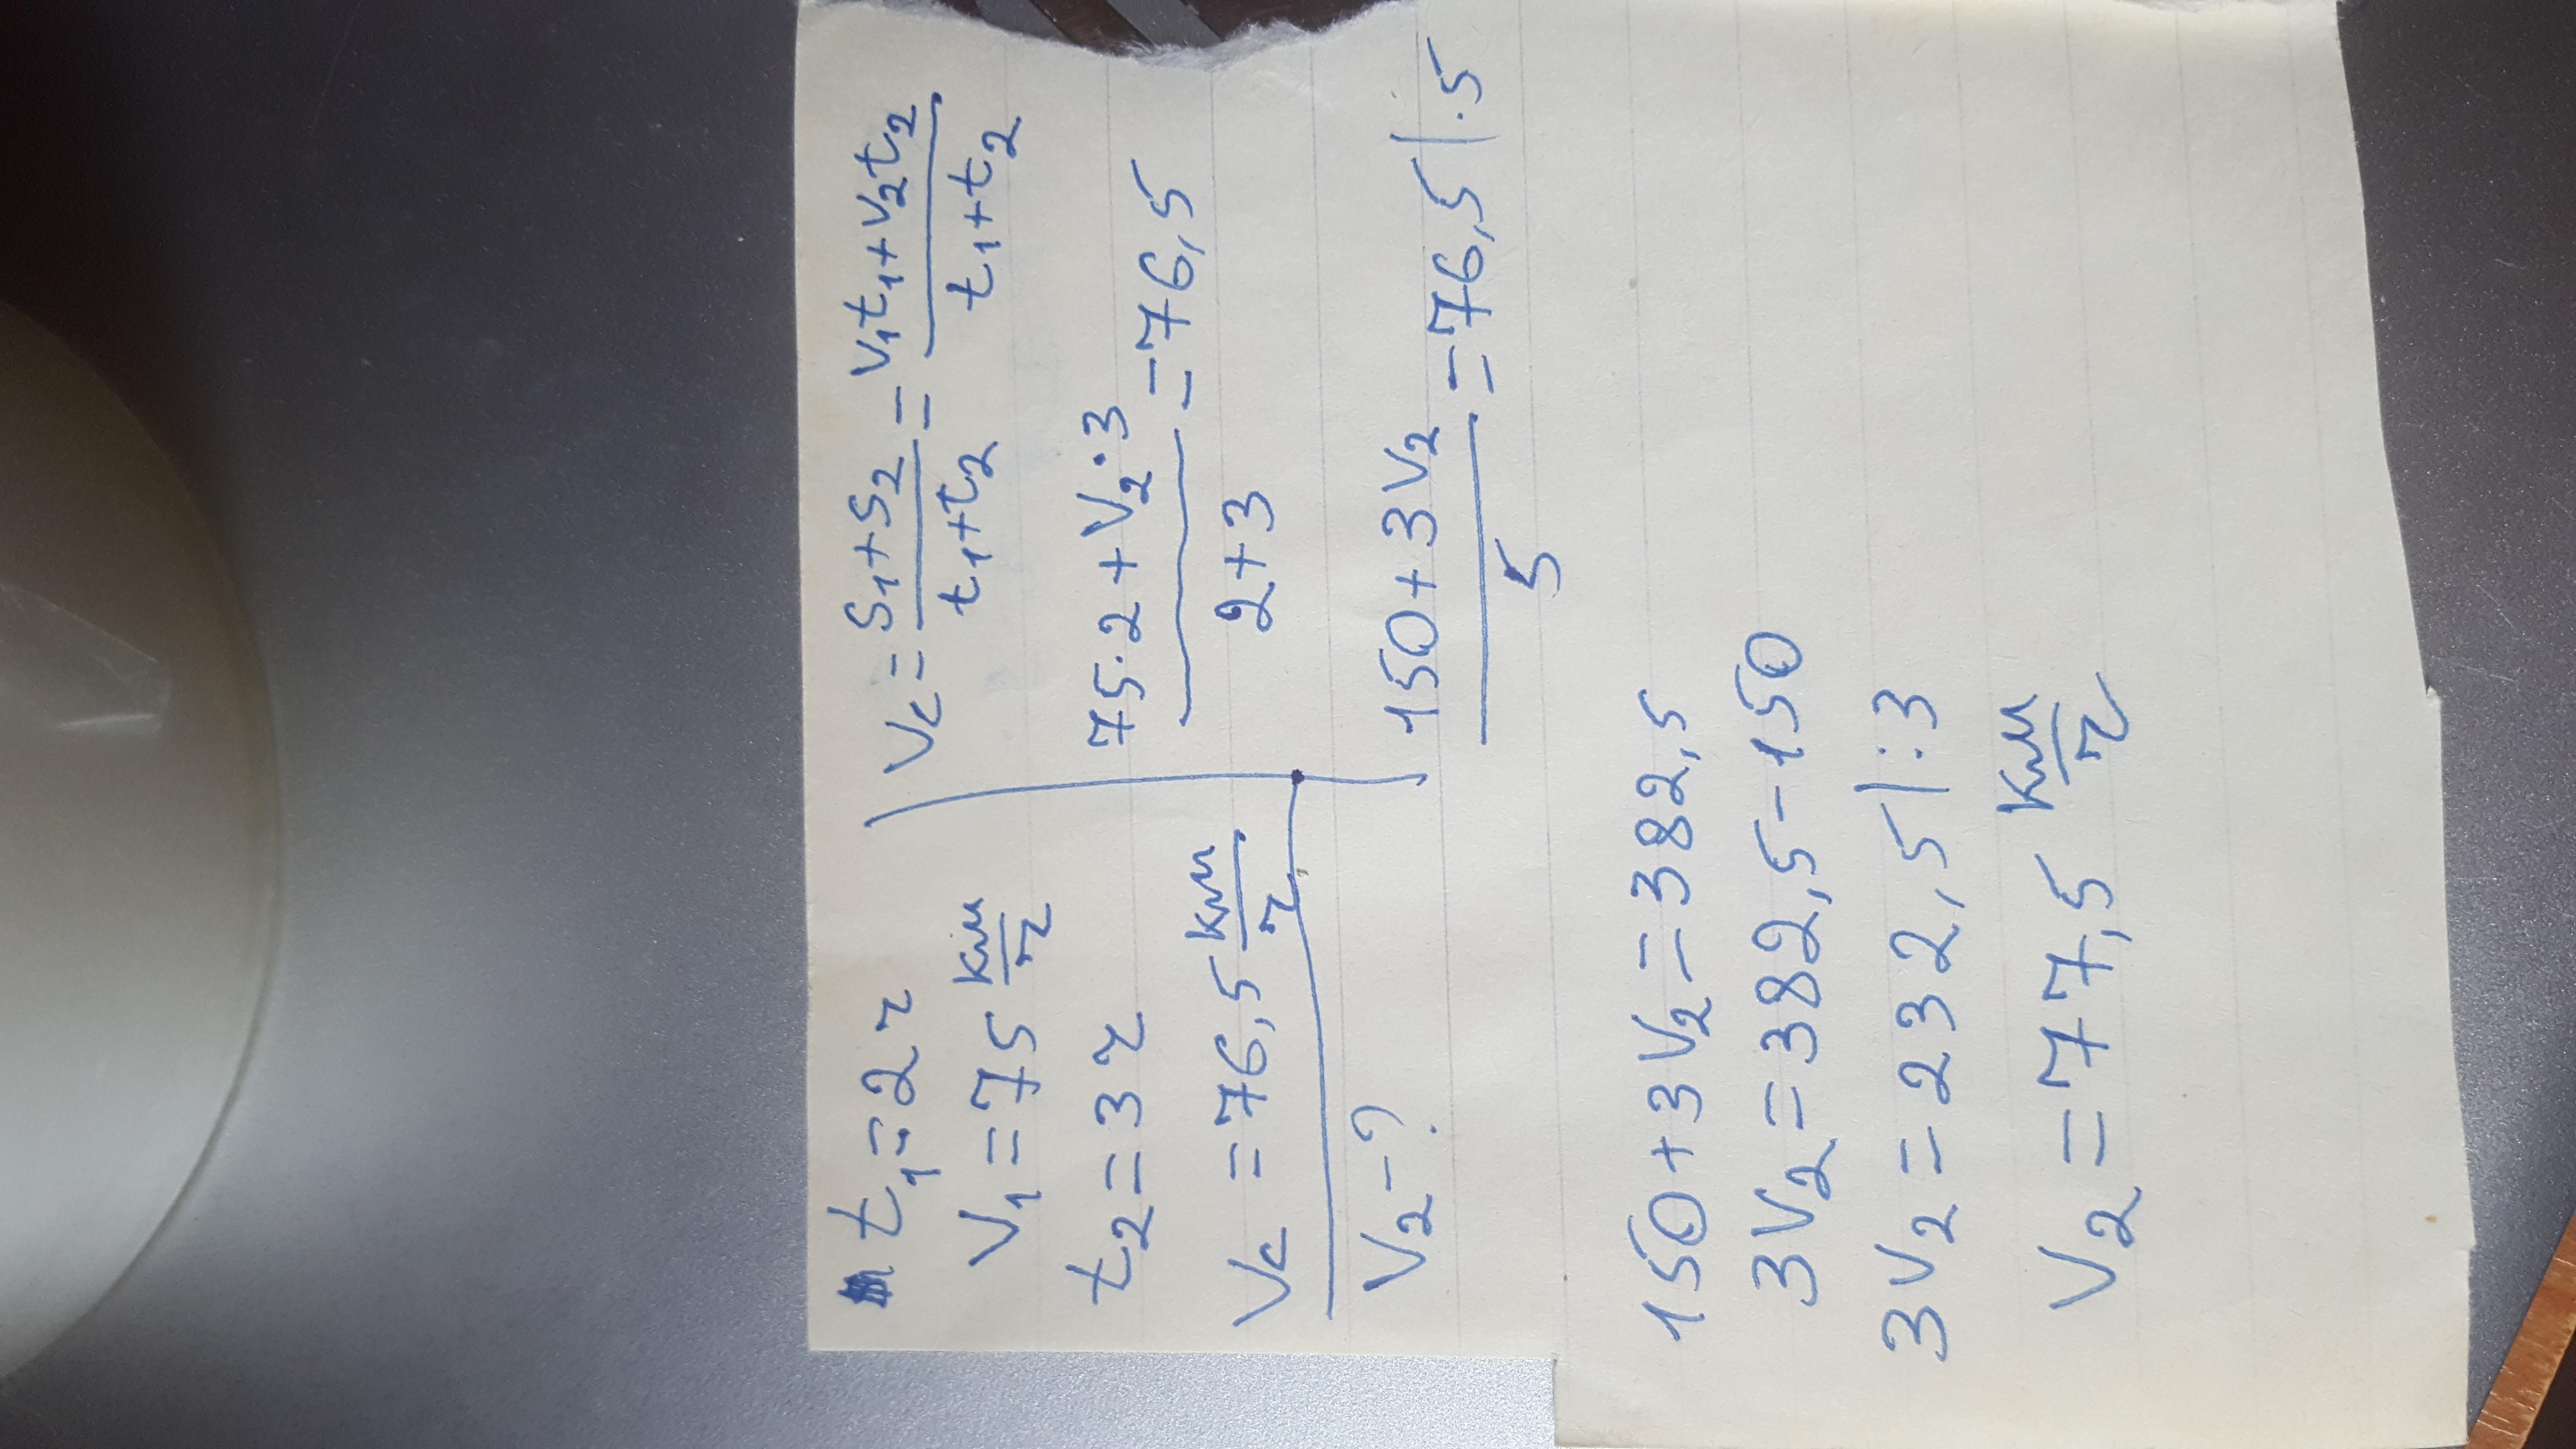 t₁=2г
V₁=75 км/г
t₂=3г
Vс=76,5 км/г
V₂-?
Vс=(S₁+S₂)/(t₁+t₂)=(V₁t₁+V₂t₂)/(t₁+t₂)
(75·2+V₂·3)/(2+3)=76,5
(150+3V₂)/5=76,5|·5
150+3V₂=382,5
3V₂=382,5-150
3V₂=232,5|:3
V₂=77,5 км/г